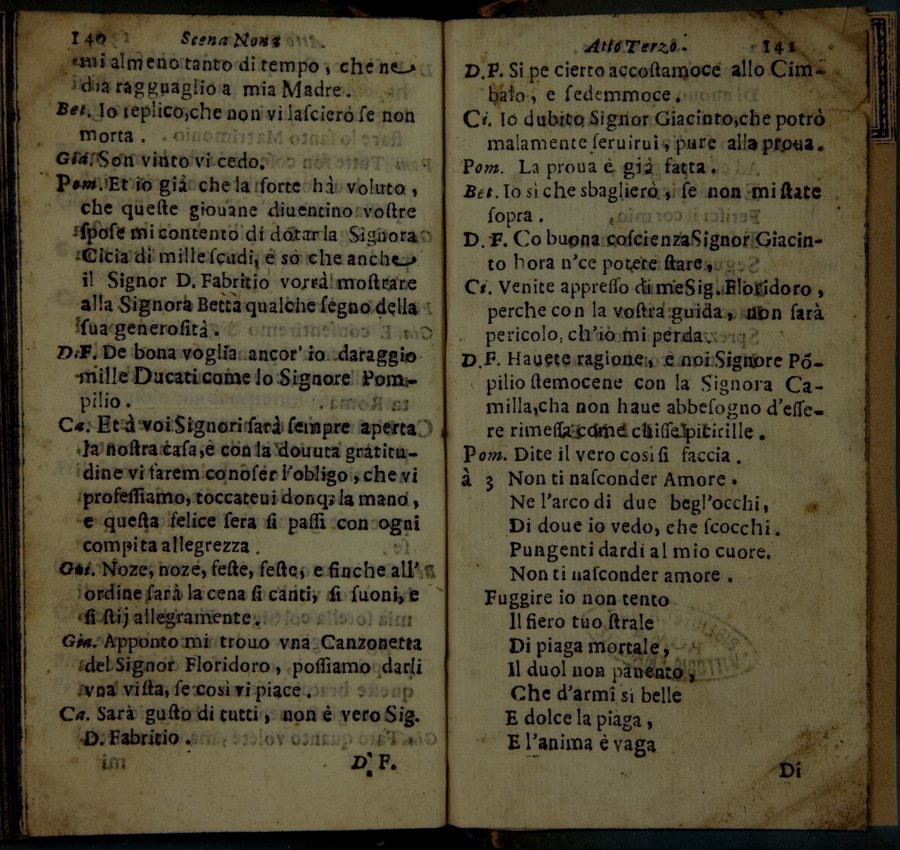 140 Scena Nona
mi almeno tanto di tempo, che ne
dia ragguaglio a mia Madre.
Bet. Io replico, che non vi lascierò se non
morta.
Gia. Son vinto vi cedo.
Pom. Et io già che la sorte hà voluto,
che queste giouane diuentino vostre
spose mi contento di dotar la Signora
Cicia di mille scudi, e so che anche
il Signor D. Fabritio vorrà mostrare
alla Signora Betta qualche segno della
sua generosità.
D.F. De bona voglia ancor' io daraggio
mille Ducati come lo Signore Pom-
pilio.
Ca. Et à voi Signori sarà sempre aperta
la nostra casa, e con la douuta gratitu-
dine vi farem conoscer l'obligo, che vi
professiamo, toccateui donq; la mano,
e questa felice sera si passi con ogni
compita allegrezza.
Noze, noze, feste, feste, e finche all'
ordine sarà la cena si canti, si suoni, e
si stij allegramente.
Gia. Apponto mi trouo vna Canzonetta
del Signor Floridoro, possiamo darli
vna vista, se così vi piace.
Ca. Sarà gusto di tutti, non è vero Sig.
D. Fabritio.
D. F.
Atto Terzo. 141
D. F. Si pe cierto accostamoce allo Cim-
balo, e sedemmoce.
Ci. Io dubito Signor Giacinto, che potrò
malamente seruirui, pure alla proua.
Pom. La proua è già fatta.
Bet. Io si che sbaglierò, se non mi state
sopra.
D. F. Co buona coscienza Signor Giacin-
to hora n'ce potete stare,
Ci. Venite appresso di me Sig. Floridoro,
perche con la vostra guida, non sarà
pericolo, ch'io mi perda.
D. F. Hauete ragione, e noi Signore Põ-
pilio stemocene con la Signora Ca-
milla, cha non haue abbesogno d'esse-
re rimessa come chisse piticille.
Pom. Dite il vero così si faccia.
à 3 Non ti nasconder Amore.
Ne l'arco di due begl'occhi,
Di doue io vedo, che scocchi.
Pungenti dardi al mio cuore.
Non ti nasconder amore.
Fuggire io non tento
Il fiero tuo strale
Di piaga mortale,
Il duol non pauento,
Che d'armi si belle
E dolce la piaga,
E l'anima è vaga
Di